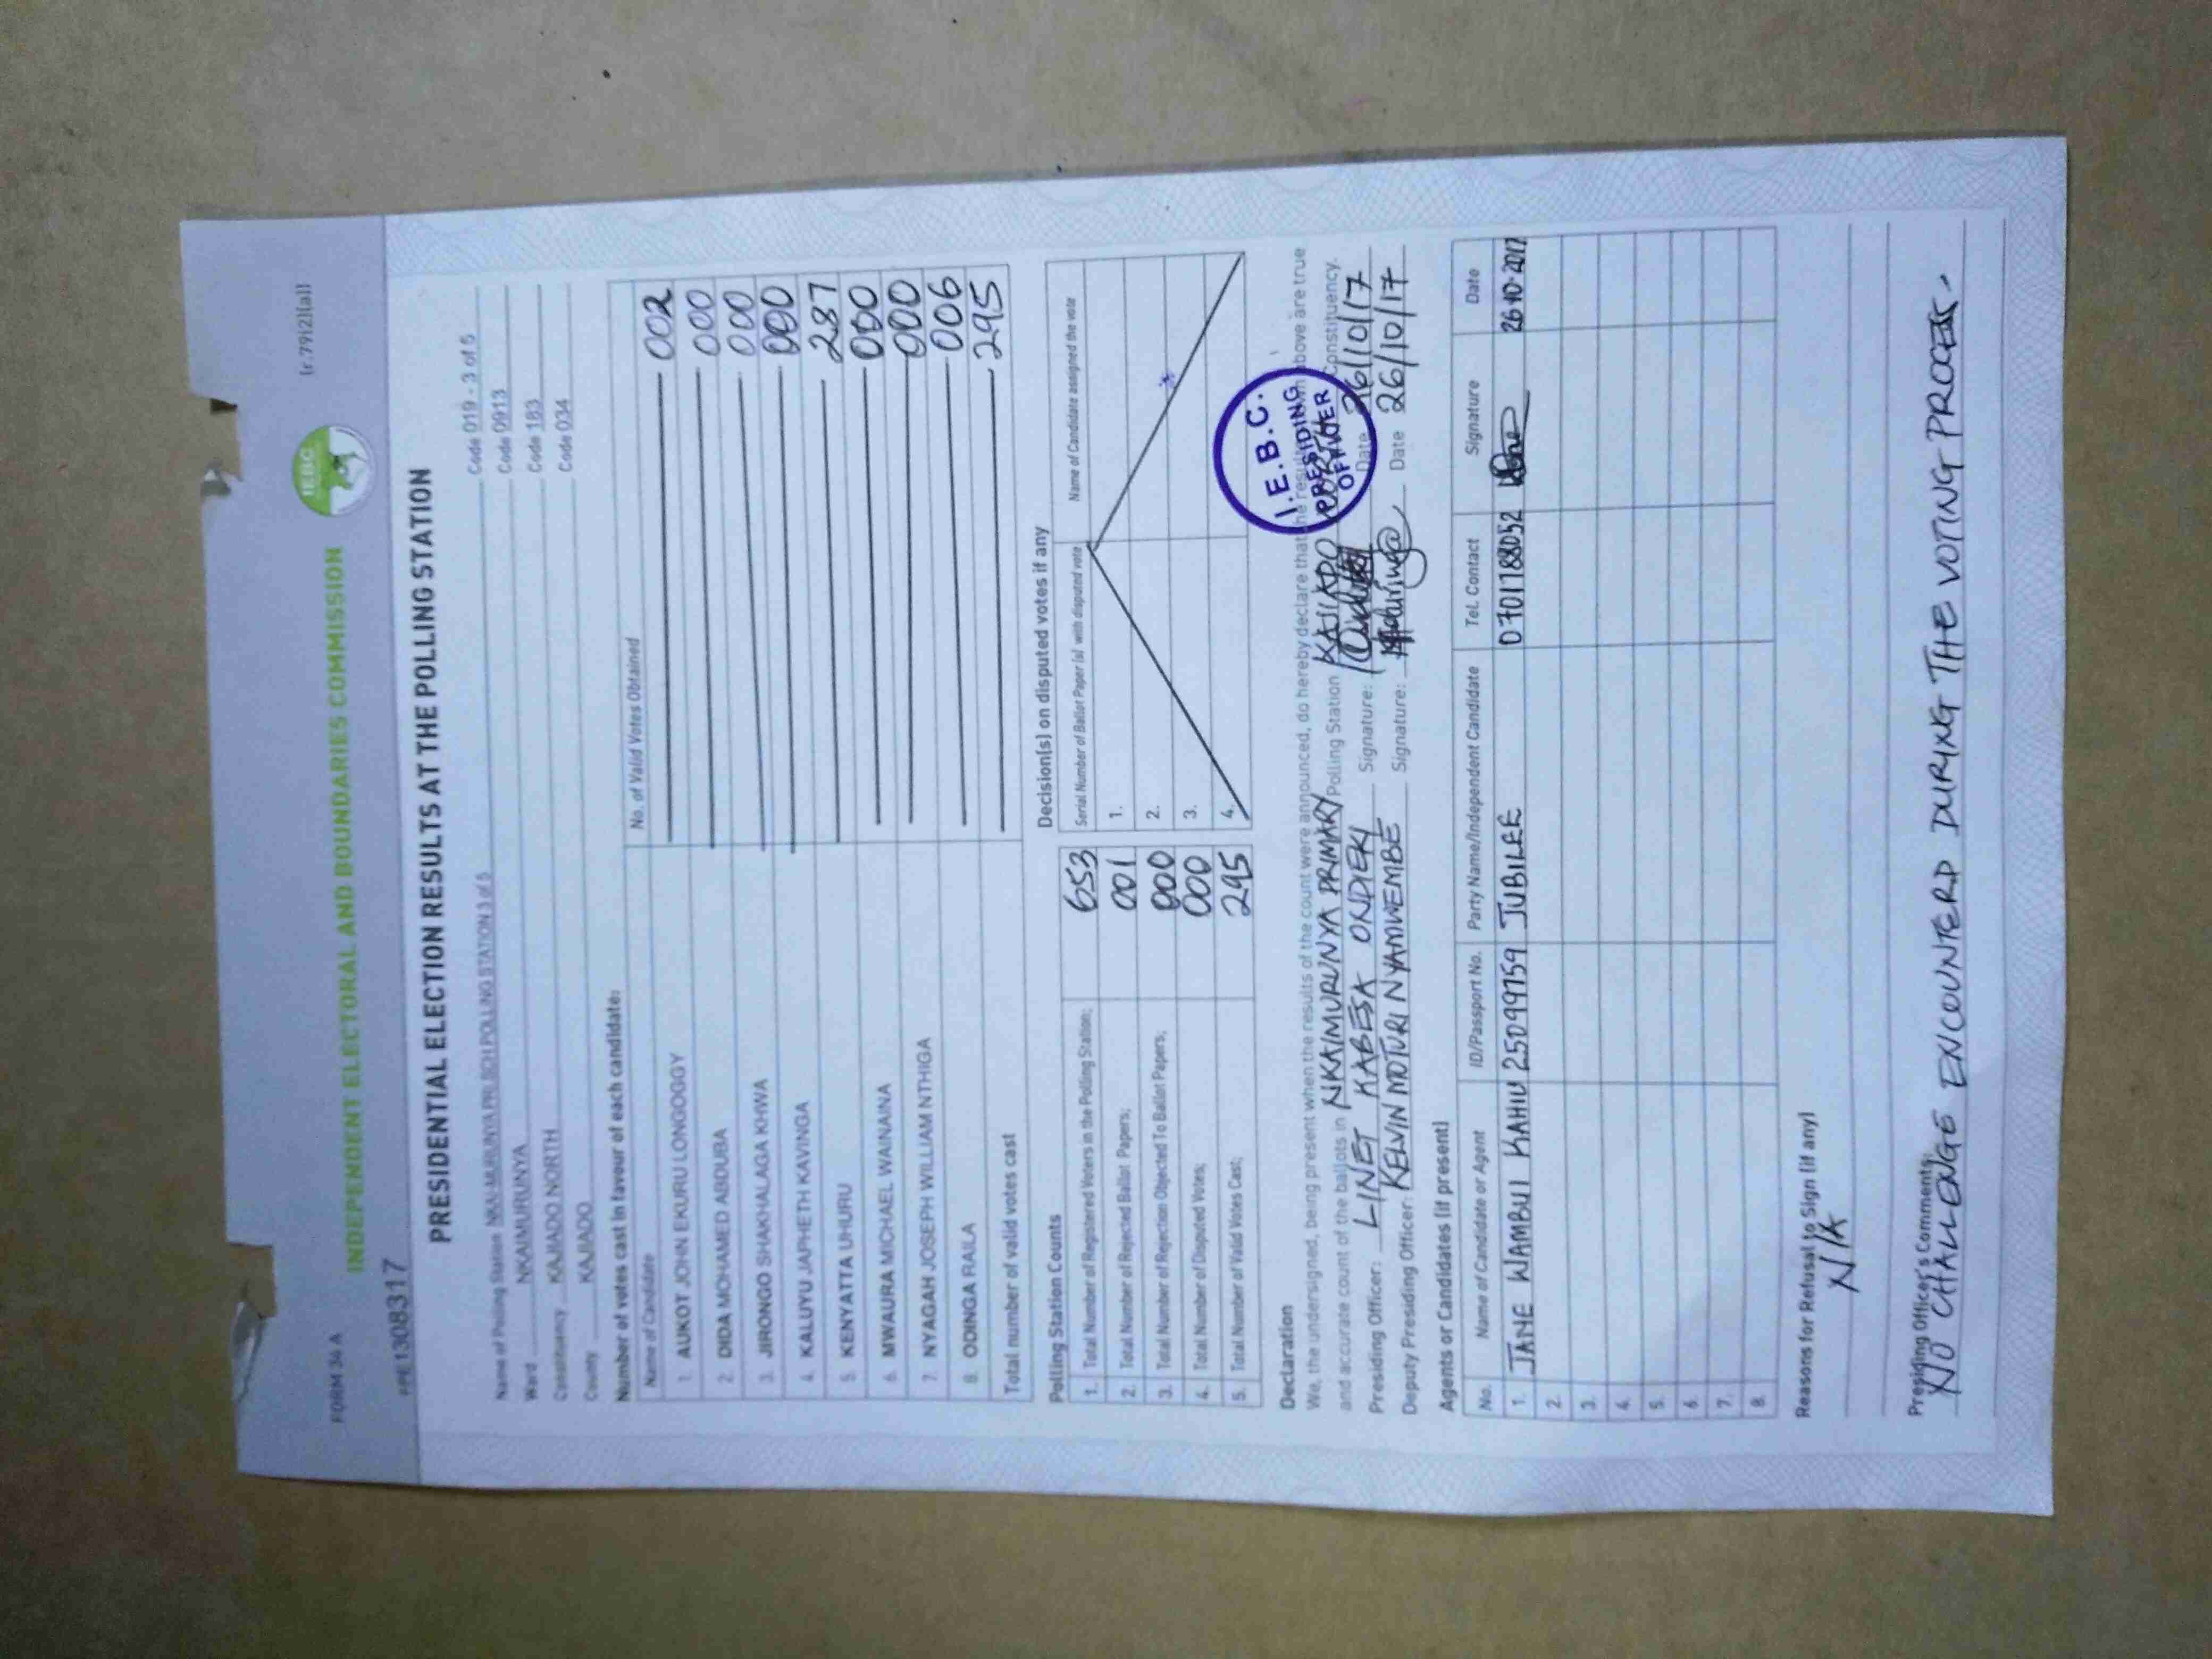 FORM 34 A
(r.79(2)(a))
IEBC
INDEPENDENT ELECTORAL AND BOUNDARIES COMMISSION
PRESIDENTIAL ELECTION RESULTS AT THE POLLING STATION
Name of Polling Station NKAI-MURUNYA PRI SCH POLLING STATION 3 of 5 Code 019 - 3 of 5
Ward NKAIMURUNYA Code 0913
Constituency KAJIADO NORTH Code 183
County KAJIADO Code 034
Number of votes cast in favour of each candidate:
Name of Candidate No. of Valid Votes Obtained
1. AUKOT JOHN EKURU LONGOGGY 002
2. DIDA MOHAMED ABDUBA 000
3. JIRONGO SHAKHALAGA KHWA 000
4. KALUYU JAPHETH KAVINGA 000
5. KENYATTA UHURU 287
6. MWAURA MICHAEL WAINAINA 000
7. NYAGAH JOSEPH WILLIAM NTHIGA 000
8. ODINGA RAILA 006
Total number of valid votes cast 295
Polling Station Counts
1. Total Number of Registered Voters in the Polling Station; 653
2. Total Number of Rejected Ballot Papers; 001
3. Total Number of Rejection Objected To Ballot Papers; 000
4. Total Number of Disputed Votes; 000
5. Total Number of Valid Votes Cast; 295
Decision(s) on disputed votes if any
Serial Number of Ballot Paper(s) with disputed vote Name of Candidate assigned the vote
1.
2.
3.
4.
Declaration
We, the undersigned, being present when the results of the count were announced, do hereby declare that the results shown above are true
and accurate count of the ballots in NKAIMURUNYA PRIMARY Polling Station KAJIADO NORTH Constituency.
Presiding Officer: LINET KABESA ONDIEKI Signature: Date 26/10/17
Deputy Presiding Officer: KELVIN MOTURI NYAMWEMBE Signature: Date 26/10/17
I.E.B.C.
PRESIDING
OFFICER
Agents or Candidates (if present)
No. Name of Candidate or Agent ID/Passport No. Party Name/Independent Candidate Tel. Contact Signature Date
1. JANE WAMBUI KAHIU 25099759 JUBILEE 0701188052 26-10-2017
2.
3.
4.
5.
6.
7.
8.
Reasons for Refusal to Sign (if any)
N/A
Presiding Officer's Comments:
NO CHALLENGE ENCOUNTERD DURING THE VOTING PROCESS.